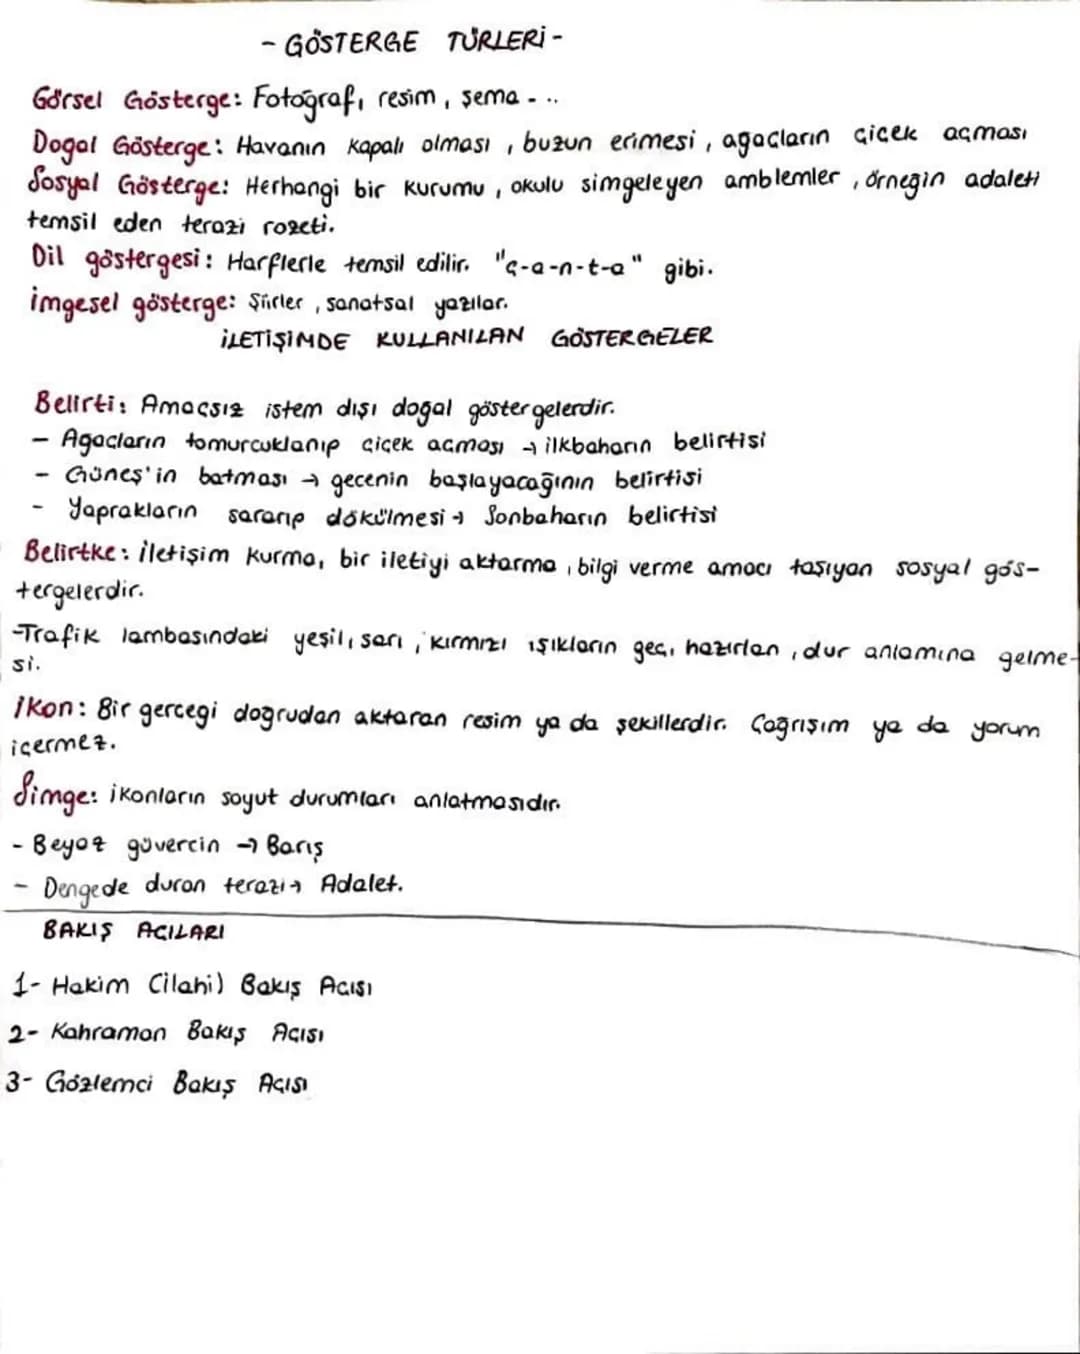 - GÖSTERGE TÜRLERİ -
Görsel Gösterge: Fotoğraf, resim, şema - ..
Dogal Gösterge: Havanın kapalı olması, buzun erimesi, agaçların çiçek açması
Sosyal Gösterge: Herhangi bir kurumu, okulu simgeleyen amblemler, örneğin adaleti
temsil eden terazi rozeti.
Dil göstergesi: Harflerle temsil edilir. "ç-a-n-t-a" gibi.
imgesel gösterge: Şiirler, sanatsal yazılar.
İLETİŞİMDE KULLANILAN GÖSTERGELER
Belirti: Amaçsız istem dışı doğal göstergelerdir.
- Agaçların tomurcuklanıp çiçek açması → ilkbaharın belirtisi
- Güneş'in batması → gecenin başlayacağının belirtisi
- Yaprakların sararıp dökülmesi → Sonbaharın belirtisi
Belirtke: İletişim kurma, bir iletiyi aktarma, bilgi verme amacı taşıyan sosyal gös-
tergelerdir.
-Trafik lambasındaki yeşil, sarı, kırmızı ışıkların geç, hazırlan, dur anlamına gelme-
si.
İkon: Bir gerçegi doğrudan aktaran resim ya da şekillerdir. Çağrışım ya da yorum
içermez.
Simge: ikonların soyut durumları anlatmasıdır.
- Beyaz güvercin → Barış
- Dengede duran terazi → Adalet.
BAKIŞ AÇILARI
1- Hakim (ilahi) Bakış Açısı
2- Kahraman Bakış Açısı
3- Gözlemci Bakış Açısı